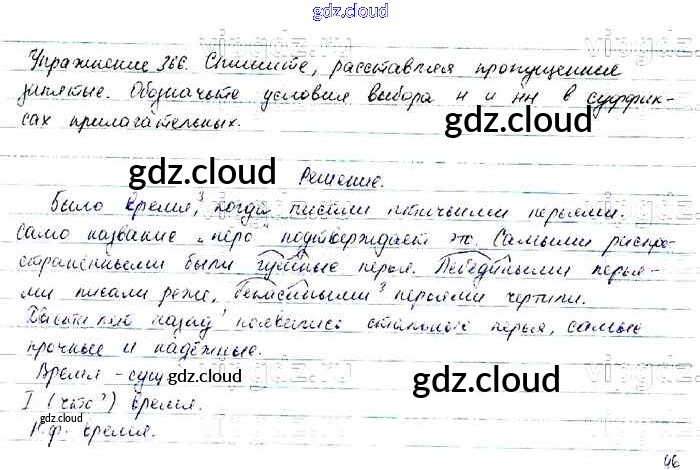 gdz.cloud
Упражнение 366. Спишите, расставляя пропущенные
запятые. Обозначьте условия выбора н и нн в суффик-
сах прилагательных.
gdz.cloud
gdz.cloud
Решение.
Было время,³ когда писали птичьими перьями.
Само название „перо“ подтверждает это. Самыми распро-
странёнными были гусиные перья. Лебедиными перья-
ми писали реже, бекасиными³ перьями чертили.
назад появились стальные перья, самые
прочные и надёжные.
Время - сущ
gdz.cloud
gdz.cloud
I (что?) время.
gdz.cloud
Н.ф. время.
46